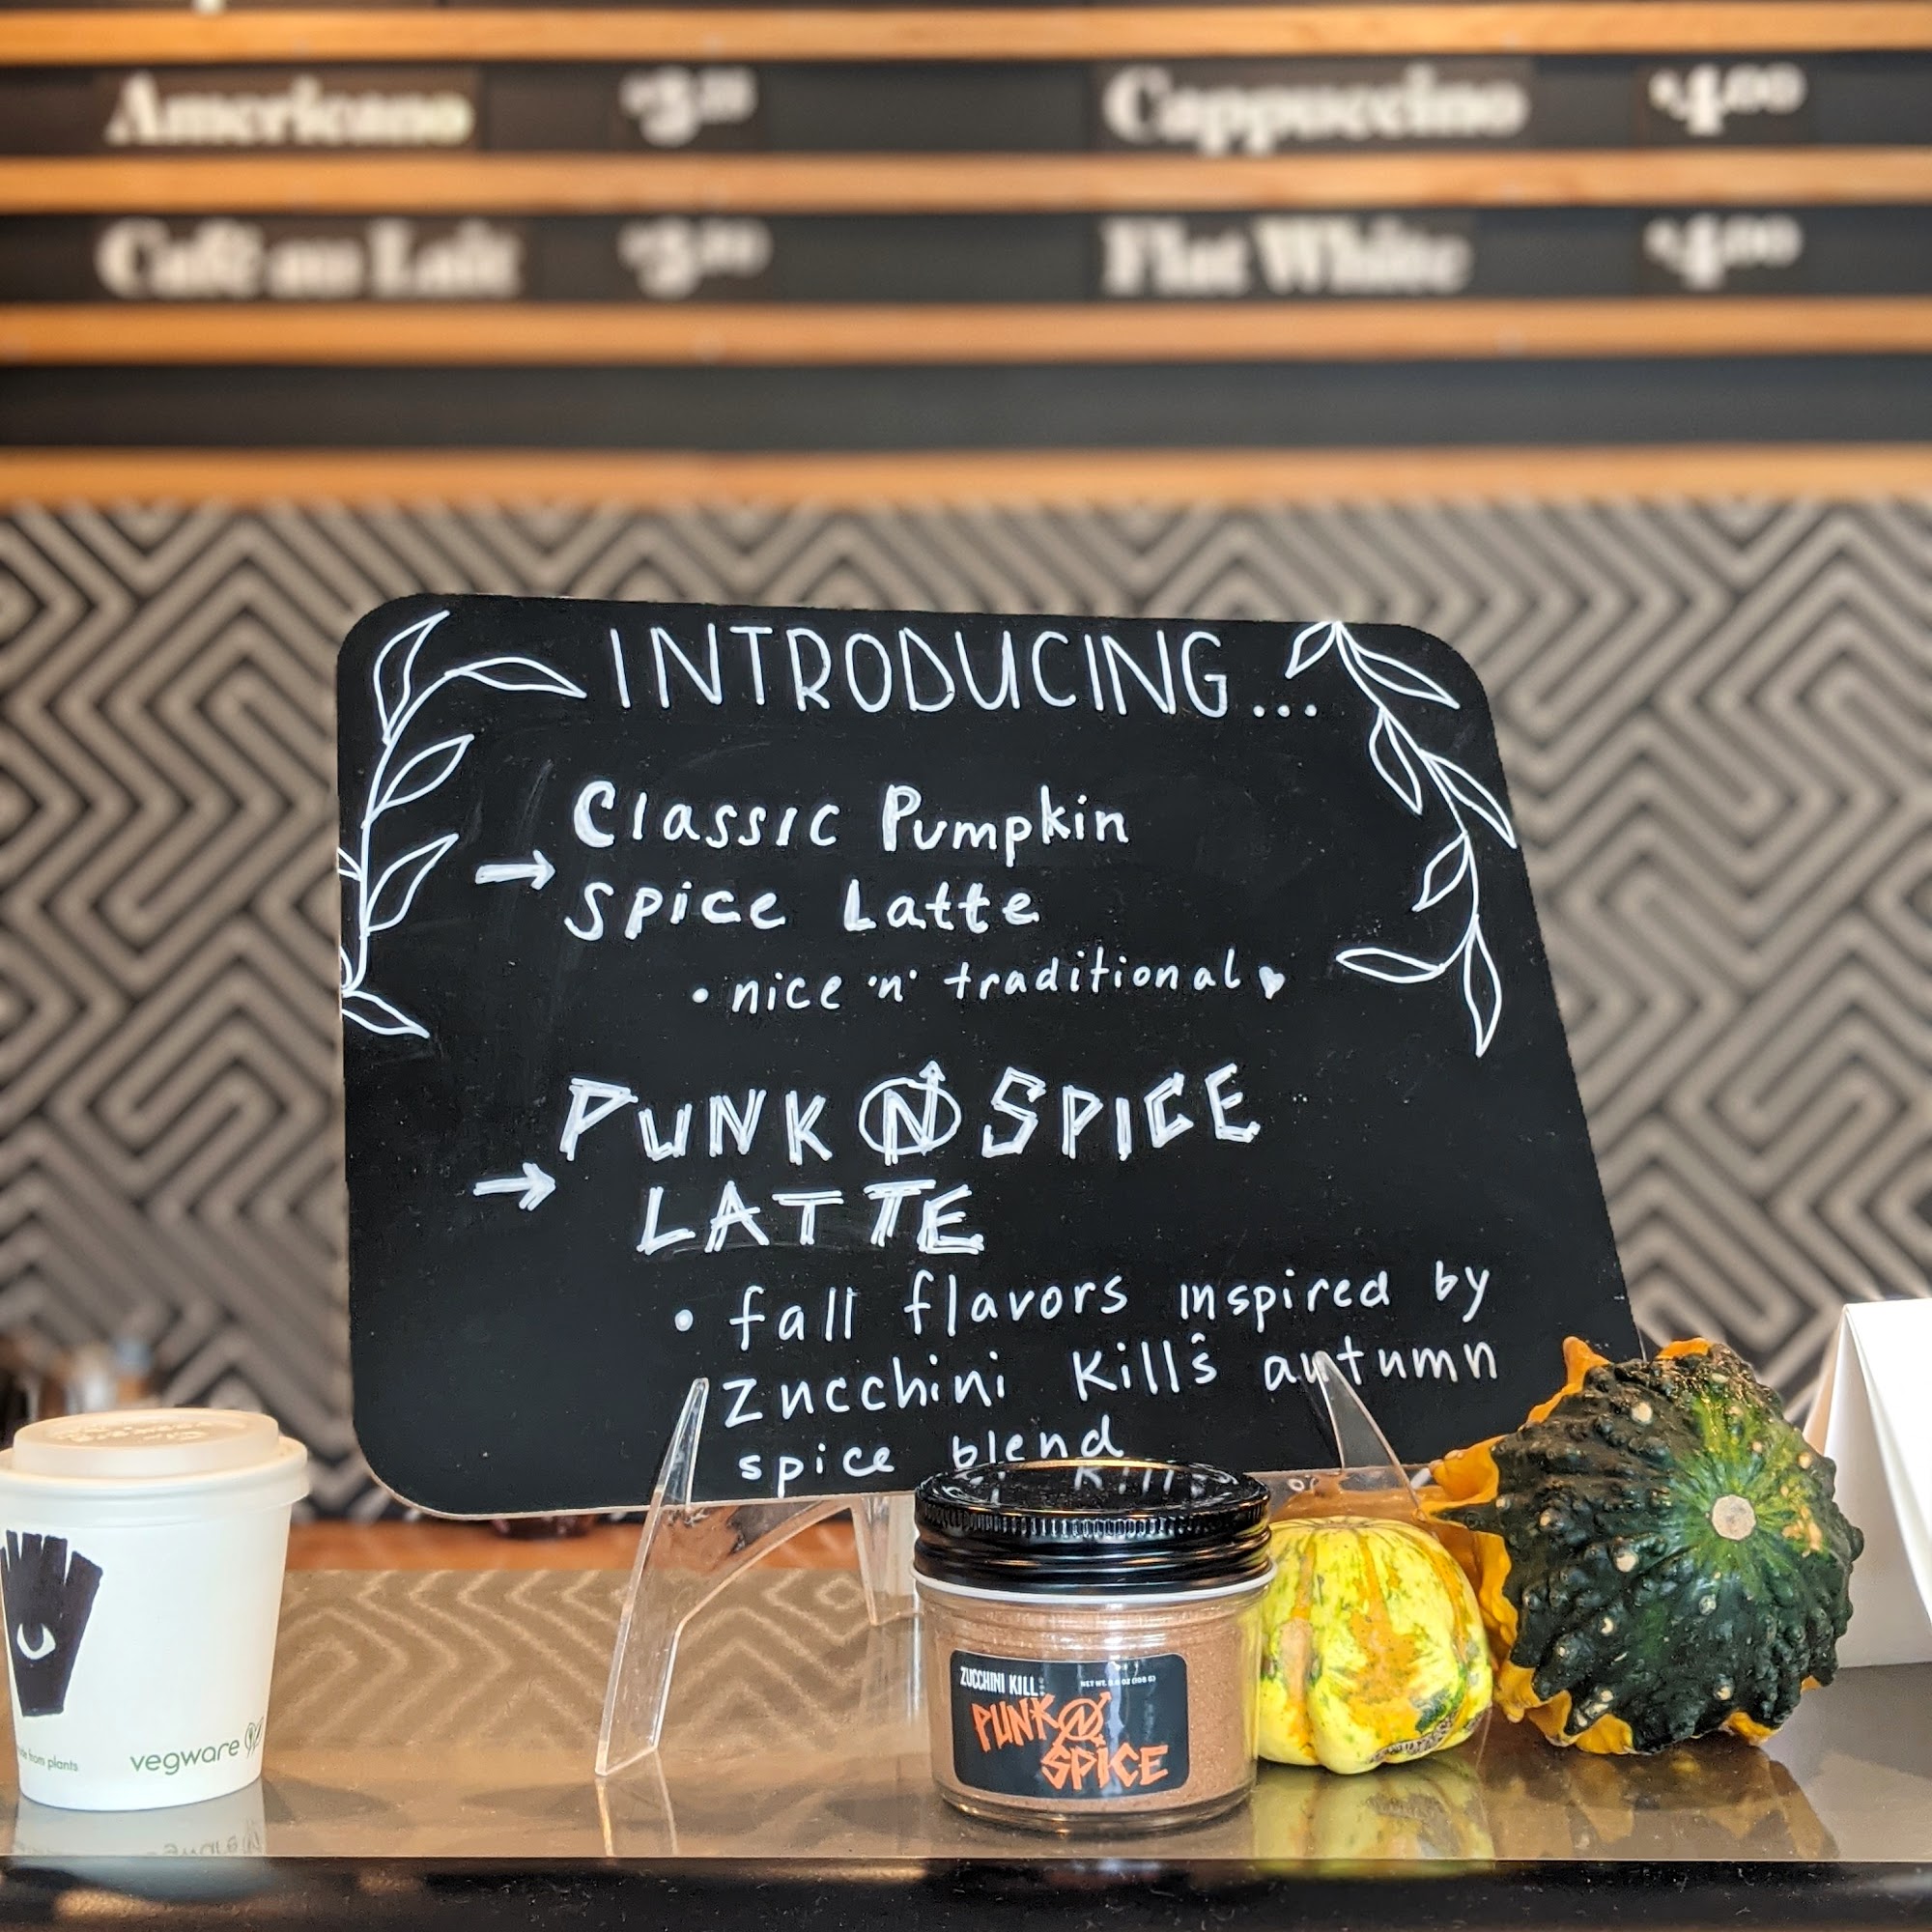 Americano
Cappuccino $4.00
Café au Lait
Flat White $4.00
INTRODUCING...
→ Classic Pumpkin
Spice Latte
• nice 'n' traditional ♥
→ PUNK N SPICE
LATTE
• fall flavors inspired by
Zucchini Kill's autumn
spice blend
vegware
from plants
ZUCCHINI KILL
NET WT.
PUNK N
SPICE